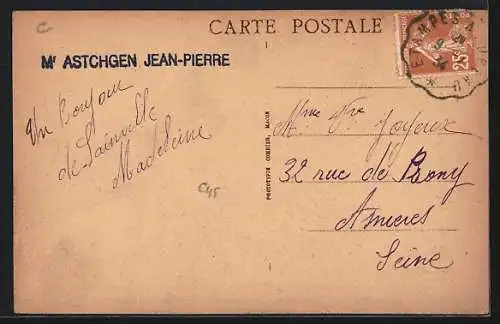 C
CARTE POSTALE
Mr ASTCHGEN JEAN-PIERRE
Un bonjour
de Sainville
Madeleine
C45
PHOTOTYPIE COMBIER, MACON
Mme Vve Joyeux
32 rue de Prony
Asnieres
Seine
ETAMPES A
25c